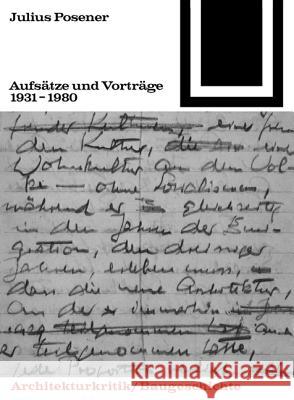 Julius Posener
Aufsätze und Vorträge
1931–1980
einer
den Kultur, die eine
Wohnkultur an den Vol-
ke — ohne Sozialismus,
während er gleichzeitig
in den Jahren der Emi-
gration, den dreissiger
Jahren, erleben muss,
dass die neue Architektur,
an der er immerhin
auch
er teilgenommen hatte,
jede
Architekturkritik/Baugeschichte